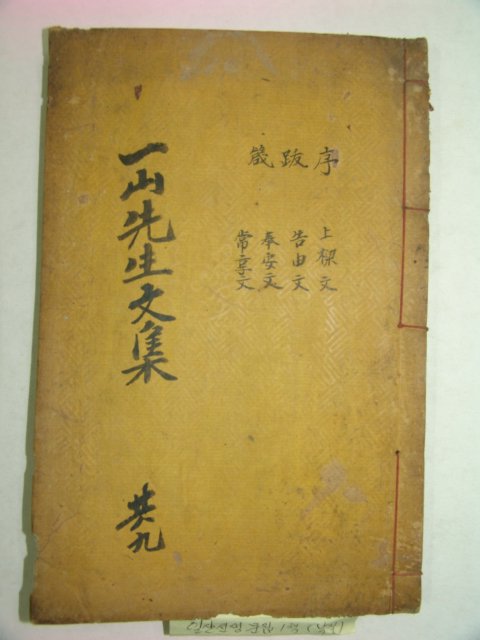 序跋箴
上樑文
告由文
奉安文
常享文
一山先生文集
共九
일산선생 문집 1책